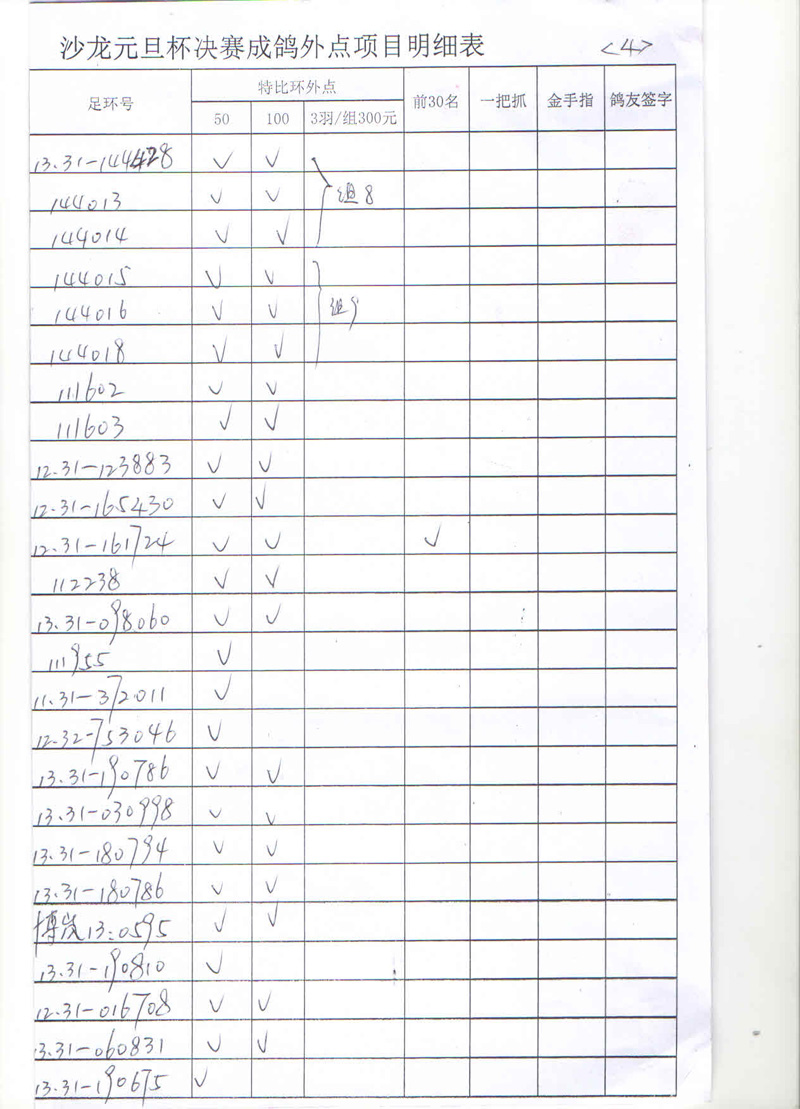 沙龙元旦杯决赛成鸽外点项目明细表 <4>
足环号 特比环外点 前30名 一把抓 金手指 鸽友签字
50 100 3羽/组300元
13.31-144428 ✓ ✓
144013 ✓ ✓ 组8
144014 ✓ ✓
144015 ✓ ✓
144016 ✓ ✓ 组9
144018 ✓ ✓
111602 ✓ ✓
111603 ✓ ✓
12.31-123883 ✓ ✓
12.31-165430 ✓ ✓
12.31-161724 ✓ ✓ ✓
112238 ✓ ✓
13.31-098060 ✓ ✓
111955 ✓
11.31-372011 ✓
12.32-753046 ✓
13.31-190786 ✓ ✓
13.31-030998 ✓ ✓
13.31-180794 ✓ ✓
13.31-180786 ✓ ✓
13:0595 ✓ ✓
13.31-190810 ✓
12.31-016708 ✓ ✓
13.31-060831 ✓ ✓
13.31-190675 ✓